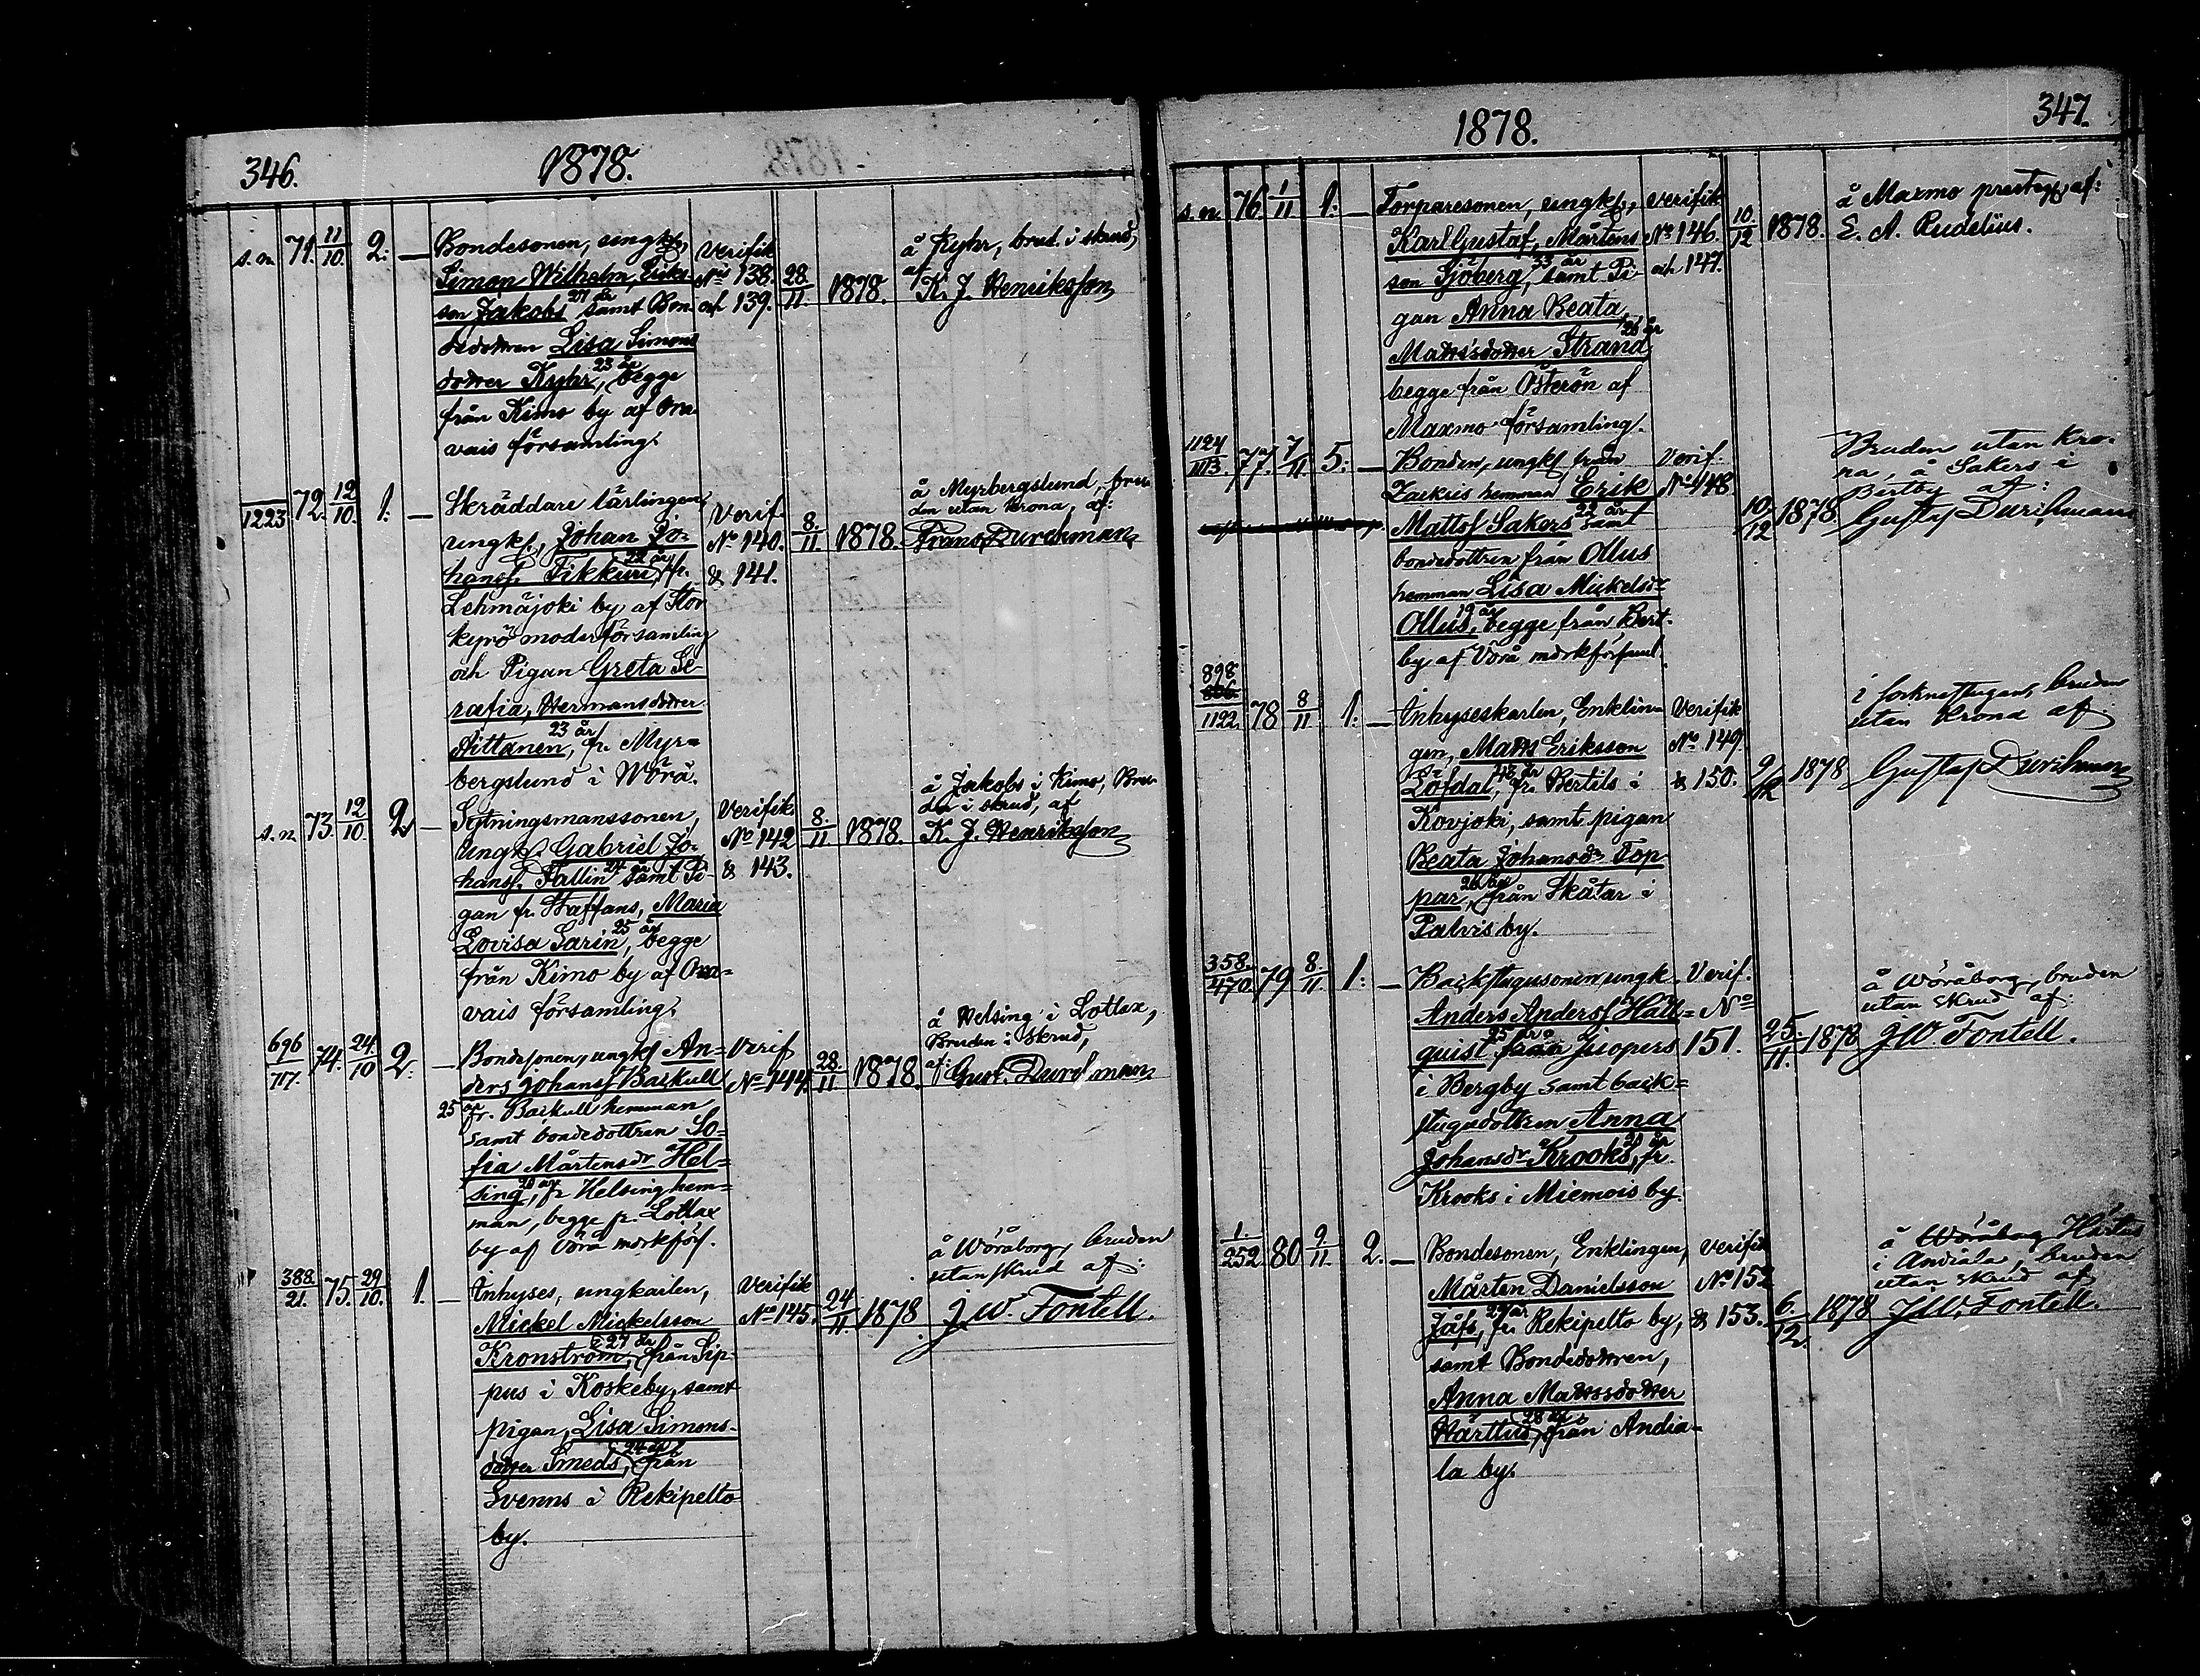 346.
1878.
s. n. 71. 11/10. 2. — Bondesonen, ungk.,
Simon Wilhelm, Eriks-
son Jakobs 27 år samt Bon-
dedottren Lisa Simons
dotter Kyhr, 23 år begge
från Kimo by af Ora-
vais församling.
Verifik
No 138.
och 139.
28/11 1878.
å Kyhr, brud. i skrud,
af
K. J. Henriksson
1223 72. 12/10. 1. — Skräddare lärlingen,
ungk., Johan Jo-
hanss. Tikkuri, 22 år fr.
Lehmäjoki by af Stor
kyrö moderförsamling
och Pigan Greta Se-
rafia, Hermansdotter
Aittanen, 23 år fr. Myr-
bergslund i Wörå.
Verif.
No 140.
& 141.
8./11. 1878.
å Myrbergslund, bru-
den utan krona, af:
Frans Durchman
s. n. 73. 12/10. 2 — Sytningsmanssonen,
Ungk. Gabriel Jo-
hanss. Fallin 24 år samt Pi-
gan fr. Staffans, Maria
Lovisa Sarin, 25 år begge
från Kimo by af Ora-
vais församling.
Verifik.
No 142
& 143.
8./11 1878.
å Jakobs i Kimo, Bru-
den i skrud, af
K. J. Henriksson
696/717. 74. 24/10 2. — Bondesonen, ungk. An-
ders Johanss Backull
25 år fr. Backull hemman
samt bondedottren So-
fia Mårtensdr Hel-
sing, 20 år fr Helsing hem-
man, begge fr. Lottax
by af Vörå modrförs.
Verif
No 144.
28./11 1878.
å Helsing i Lottax,
Bruden i skrud,
af: Gust. Durchman
388./21. 75. 29/10. 1. — Inhyses, ungkarlen,
Mickel Mickelsson
Kronström, 27 år från Sip-
pus i Koskeby, samt
pigan, Lisa Simons-
dotter Smeds, 24 år från
Svenns i Rekipelto
by.
Verifik
No 145.
24/11. 1878
å Wöråborg, bruden
utan skrud af:
J. W. Fontell.
1878.
347.
s. n. 76. 1/11 1. — Torparesonen, ungk.,
Karl Gustaf, Mårtens
son Sjöberg, 33 år samt Pi
gan Anna Beata
Mattsdotter Strand 26 år
begge från Österön af
Maxmo församling.
Verifik
No 146.
och 147.
10/12 1878.
å Maxmo prestg. af:
E. A. Rudelius.
1124/1113. 77. 7/11. 5. — Bonden, ungk från
Zackris hemman Erik
Mattss Sakers 22 år samt
bondedottren från Ollus
hemman Lisa Mickelsdr
Ollus, 19 år begge från Bert-
by af Vörå modrförsaml.
Verif.
No 148
10/12 1878
Bruden utan kro-
na, å Sakers i
Bertby af:
Gustaf Durchman
898/1122. 78 8/11 1. — Inhyseskarlen, Enklin-
gen, Matts Eriksson
Löfdal, 48 år fr. Bertils i
Kovjoki, samt pigan
Beata Johansdr Top-
par, 26 år från Skåtar i
Palvis by.
Verifik
No 149.
& 150.
9/12 1878
i sockenstugan, bruden
utan krona af
Gustaf Durchman
358./470. 79 8/11 1. — Backstugusonen, ungk.
Anders Anderss Häll-
quist 25 år från Juopers
i Bergby samt back-
stugudottren Anna
Johansdr Krooks, 21 år fr.
Krooks i Miemois by.
Verif.
No
151.
25./11. 1878
å Wöråborg, bruden
utan skrud af:
J W Fontell.
1./252 80 9/11. 2. — Bondesonen, Enklingen,
Mårten Danielsson
Jåfs, 29 år fr. Rekipelto by,
samt Bondedottren,
Anna Mattsdotter
Härttus, 28 år från Andia-
la by.
Verifik
No 152
& 153.
6./12. 1878
å Wöråborg Härtus
i Andiala, bruden
utan skrud af
J. W. Fontell.